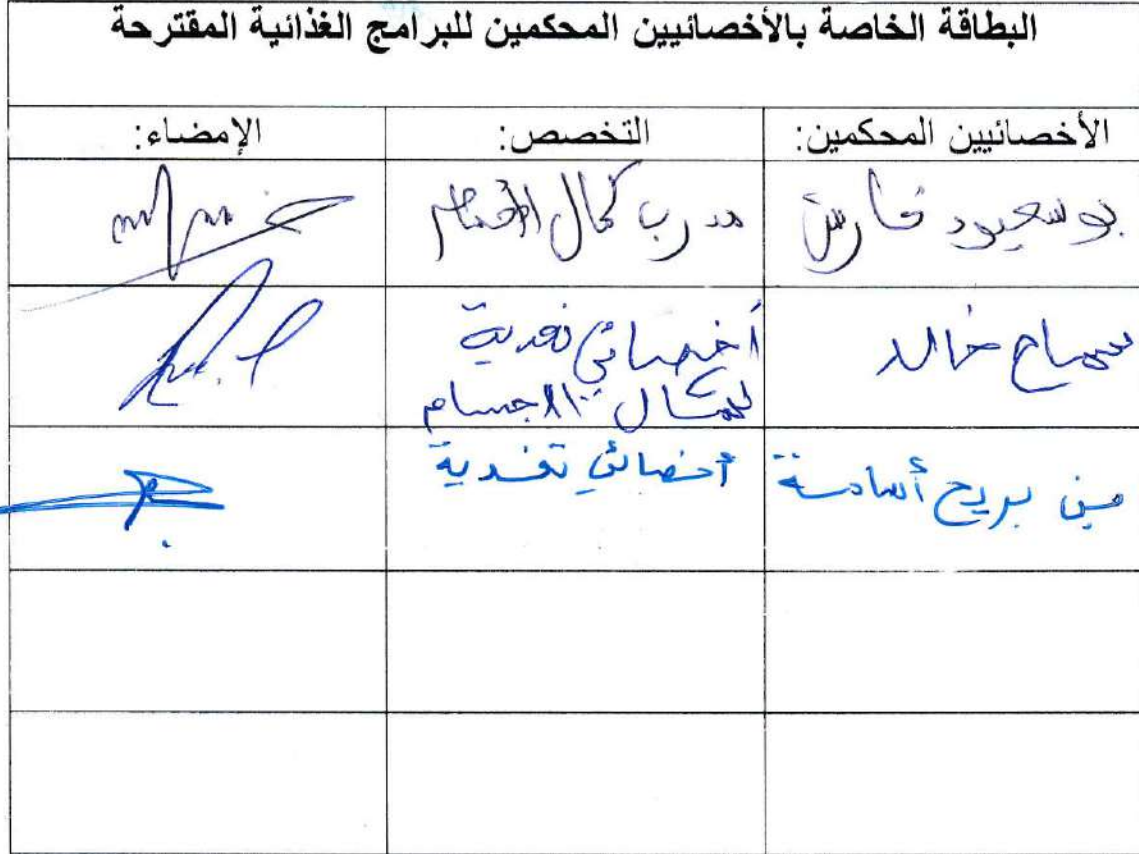 البطاقة الخاصة بالأخصائيين المحكمين للبرامج الغذائية المقترحة
الأخصائيين المحكمين: التخصص: الإمضاء:
بوسعيود فارس مدرب كمال الأجسام
سماح خالد أخصائي تغدية
لكمال الاجسام
بن بريح أسامة أخصائي تغدية